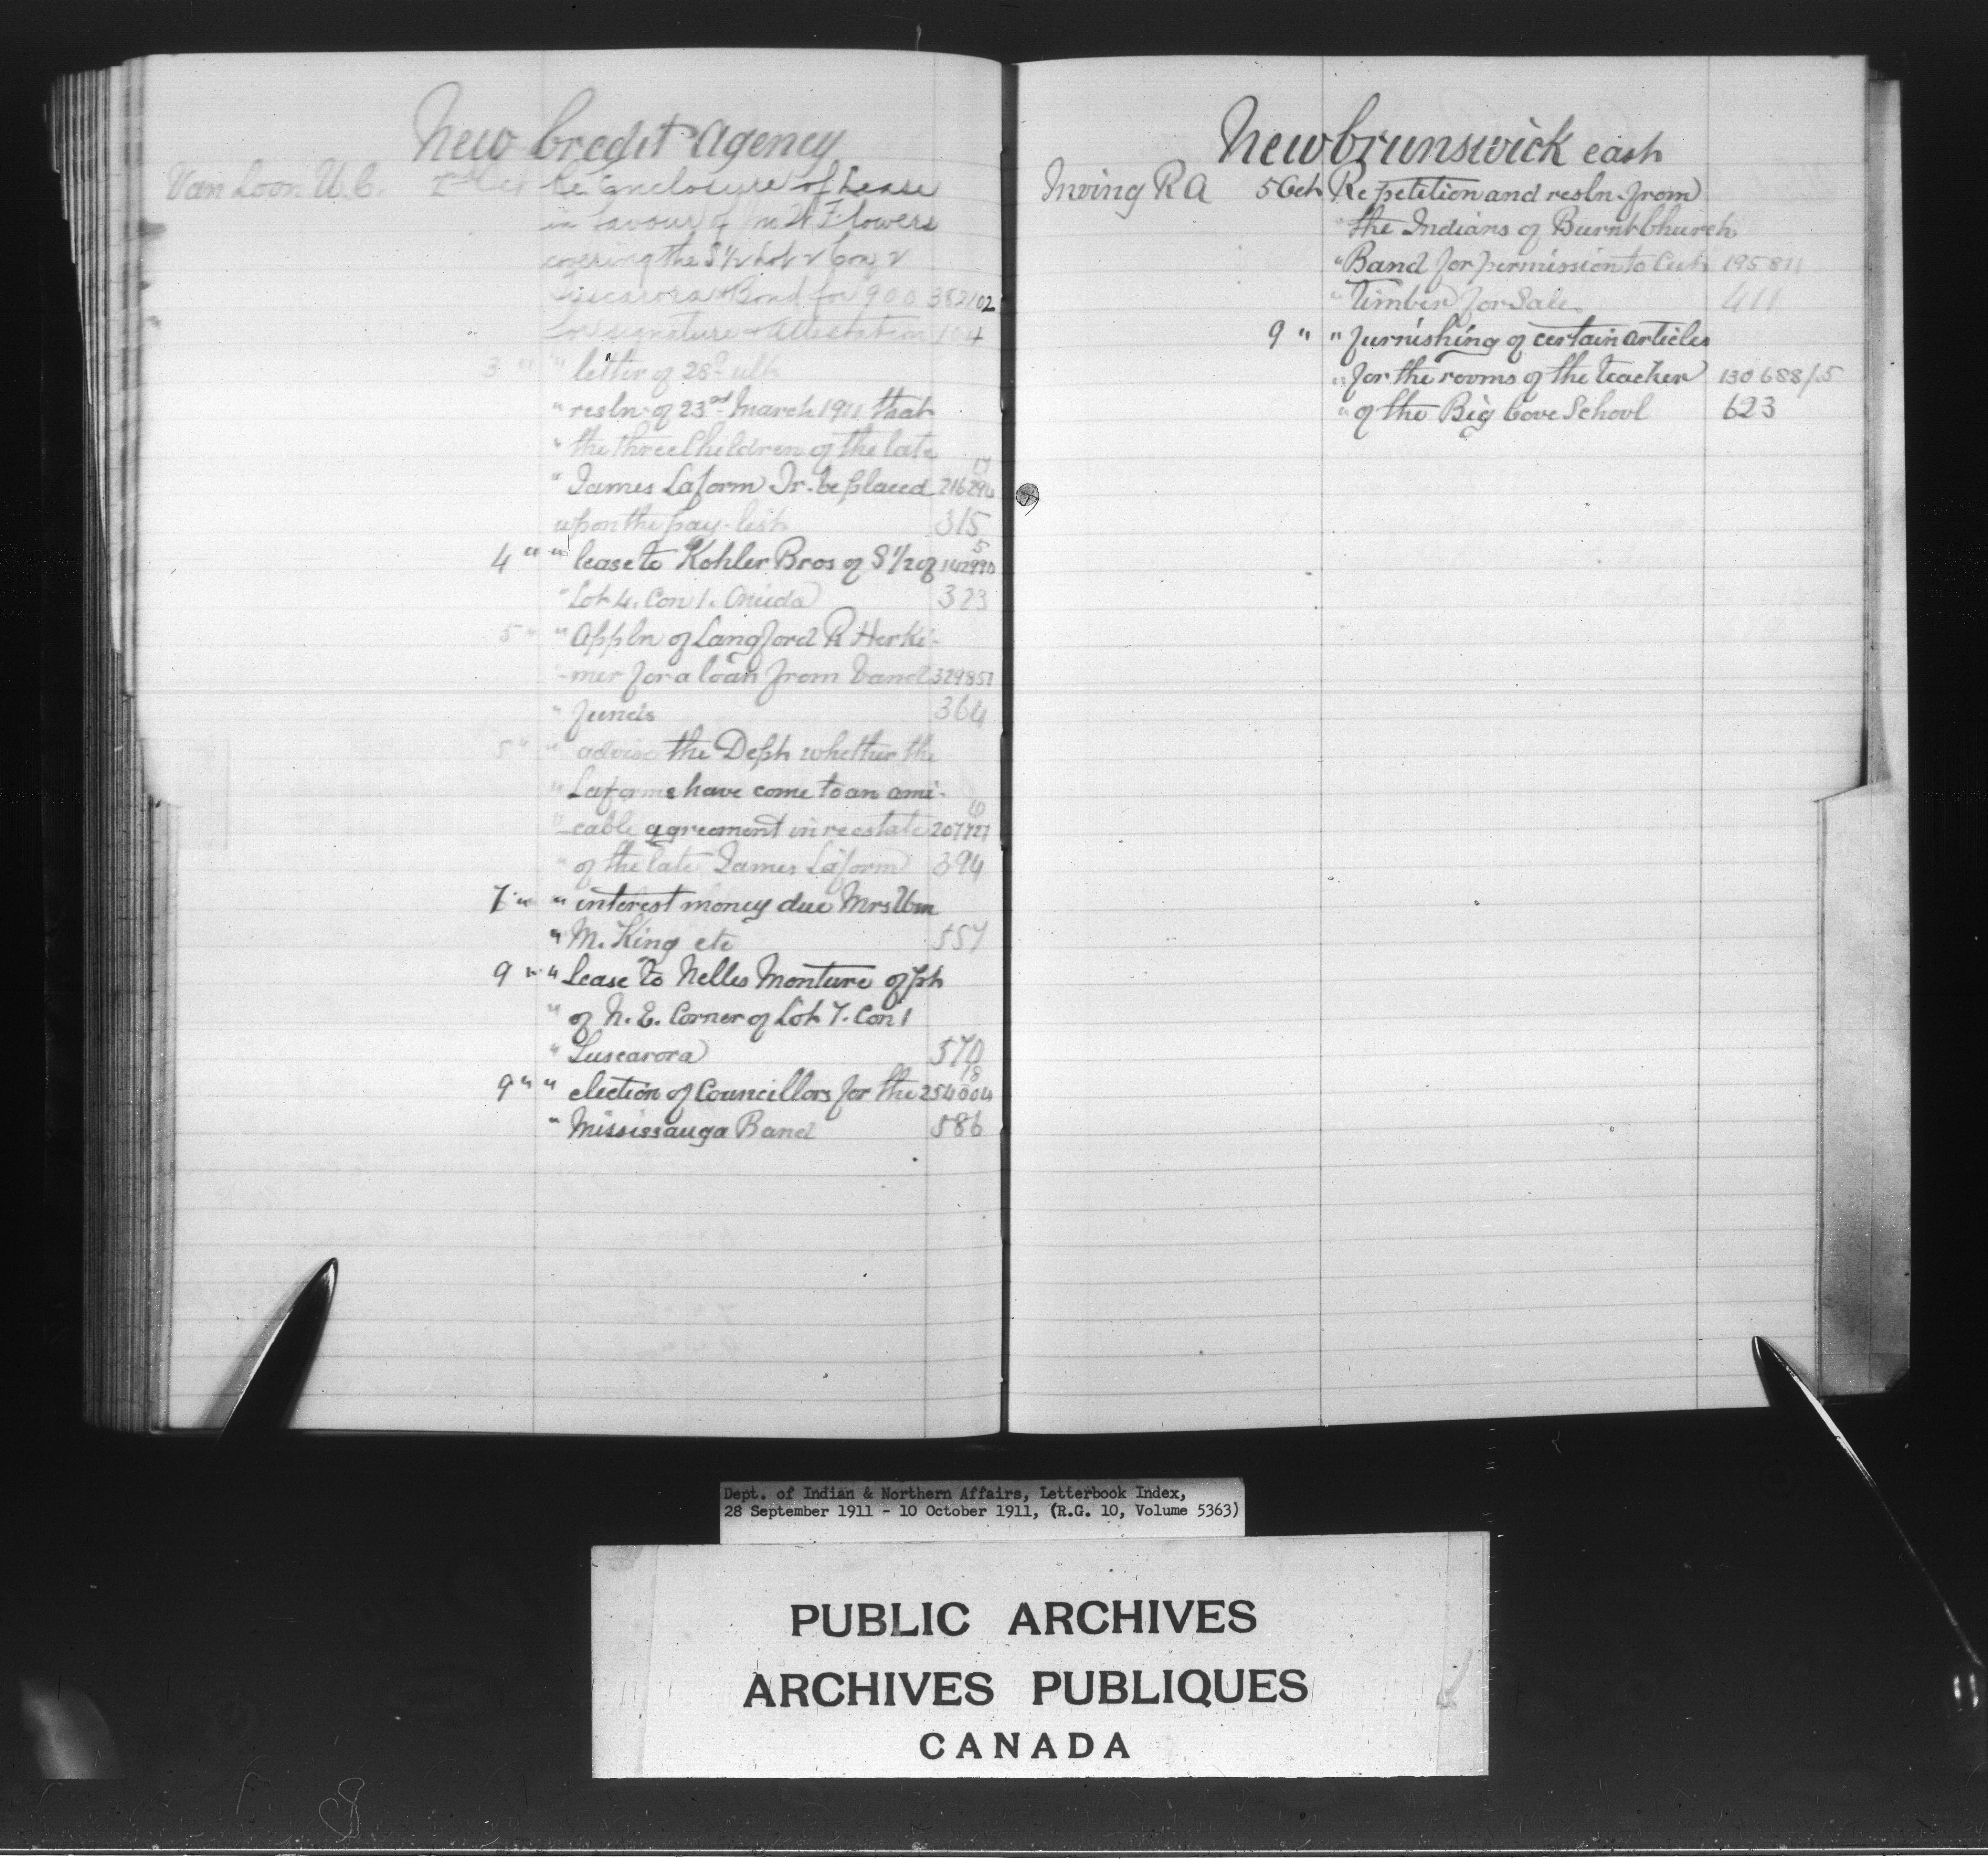 New Credit Agency
Van Loon W.C. 2nd Oct Re Enclosure of Lease
in favour of W Flowers
covering the S½ Lot 2 Con 2
Tuscarora & Bond for 900 382102
for signature & attestation 104
3 " " letter of 28th ult
" resln of 23rd March 1911 that
" the three Children of the late
" James Laform Jr. be placed 216294
upon the pay-list 315
4 " " lease to Kohler Bros of S 1/2 of 142990
" Lot 4. Con 1. Oneida 323
5 " " Appln of Langford R Herki-
-mer for a loan from band 329851
" funds 364
5 " " advise the Dept whether the
" Laforms have come to an ami-
"-cable agreement in re estate 207727
" of the late James Laform 394
7 " " interest money due Mrs Wm
" M. King etc 557
9 " " Lease to Nelles Monture of pt
" of N.E. Corner of Lot 7. Con 1
" Tuscarora 570
9 " " election of Councillors for the 254004
" Mississauga Band 586
New brunswick east
Irving R A 5 Oct Re petition and resln from
" the Indians of Burnt Church
" Band for permission to Cut 195811
" Timber for Sale 411
9 " " furnishing of certain articles
" for the rooms of the teacher 130688/5
" of the Big Cove School 623
Dept. of Indian & Northern Affairs, Letterbook Index,
28 September 1911 - 10 October 1911, (R.G. 10, Volume 5363)
PUBLIC ARCHIVES
ARCHIVES PUBLIQUES
CANADA